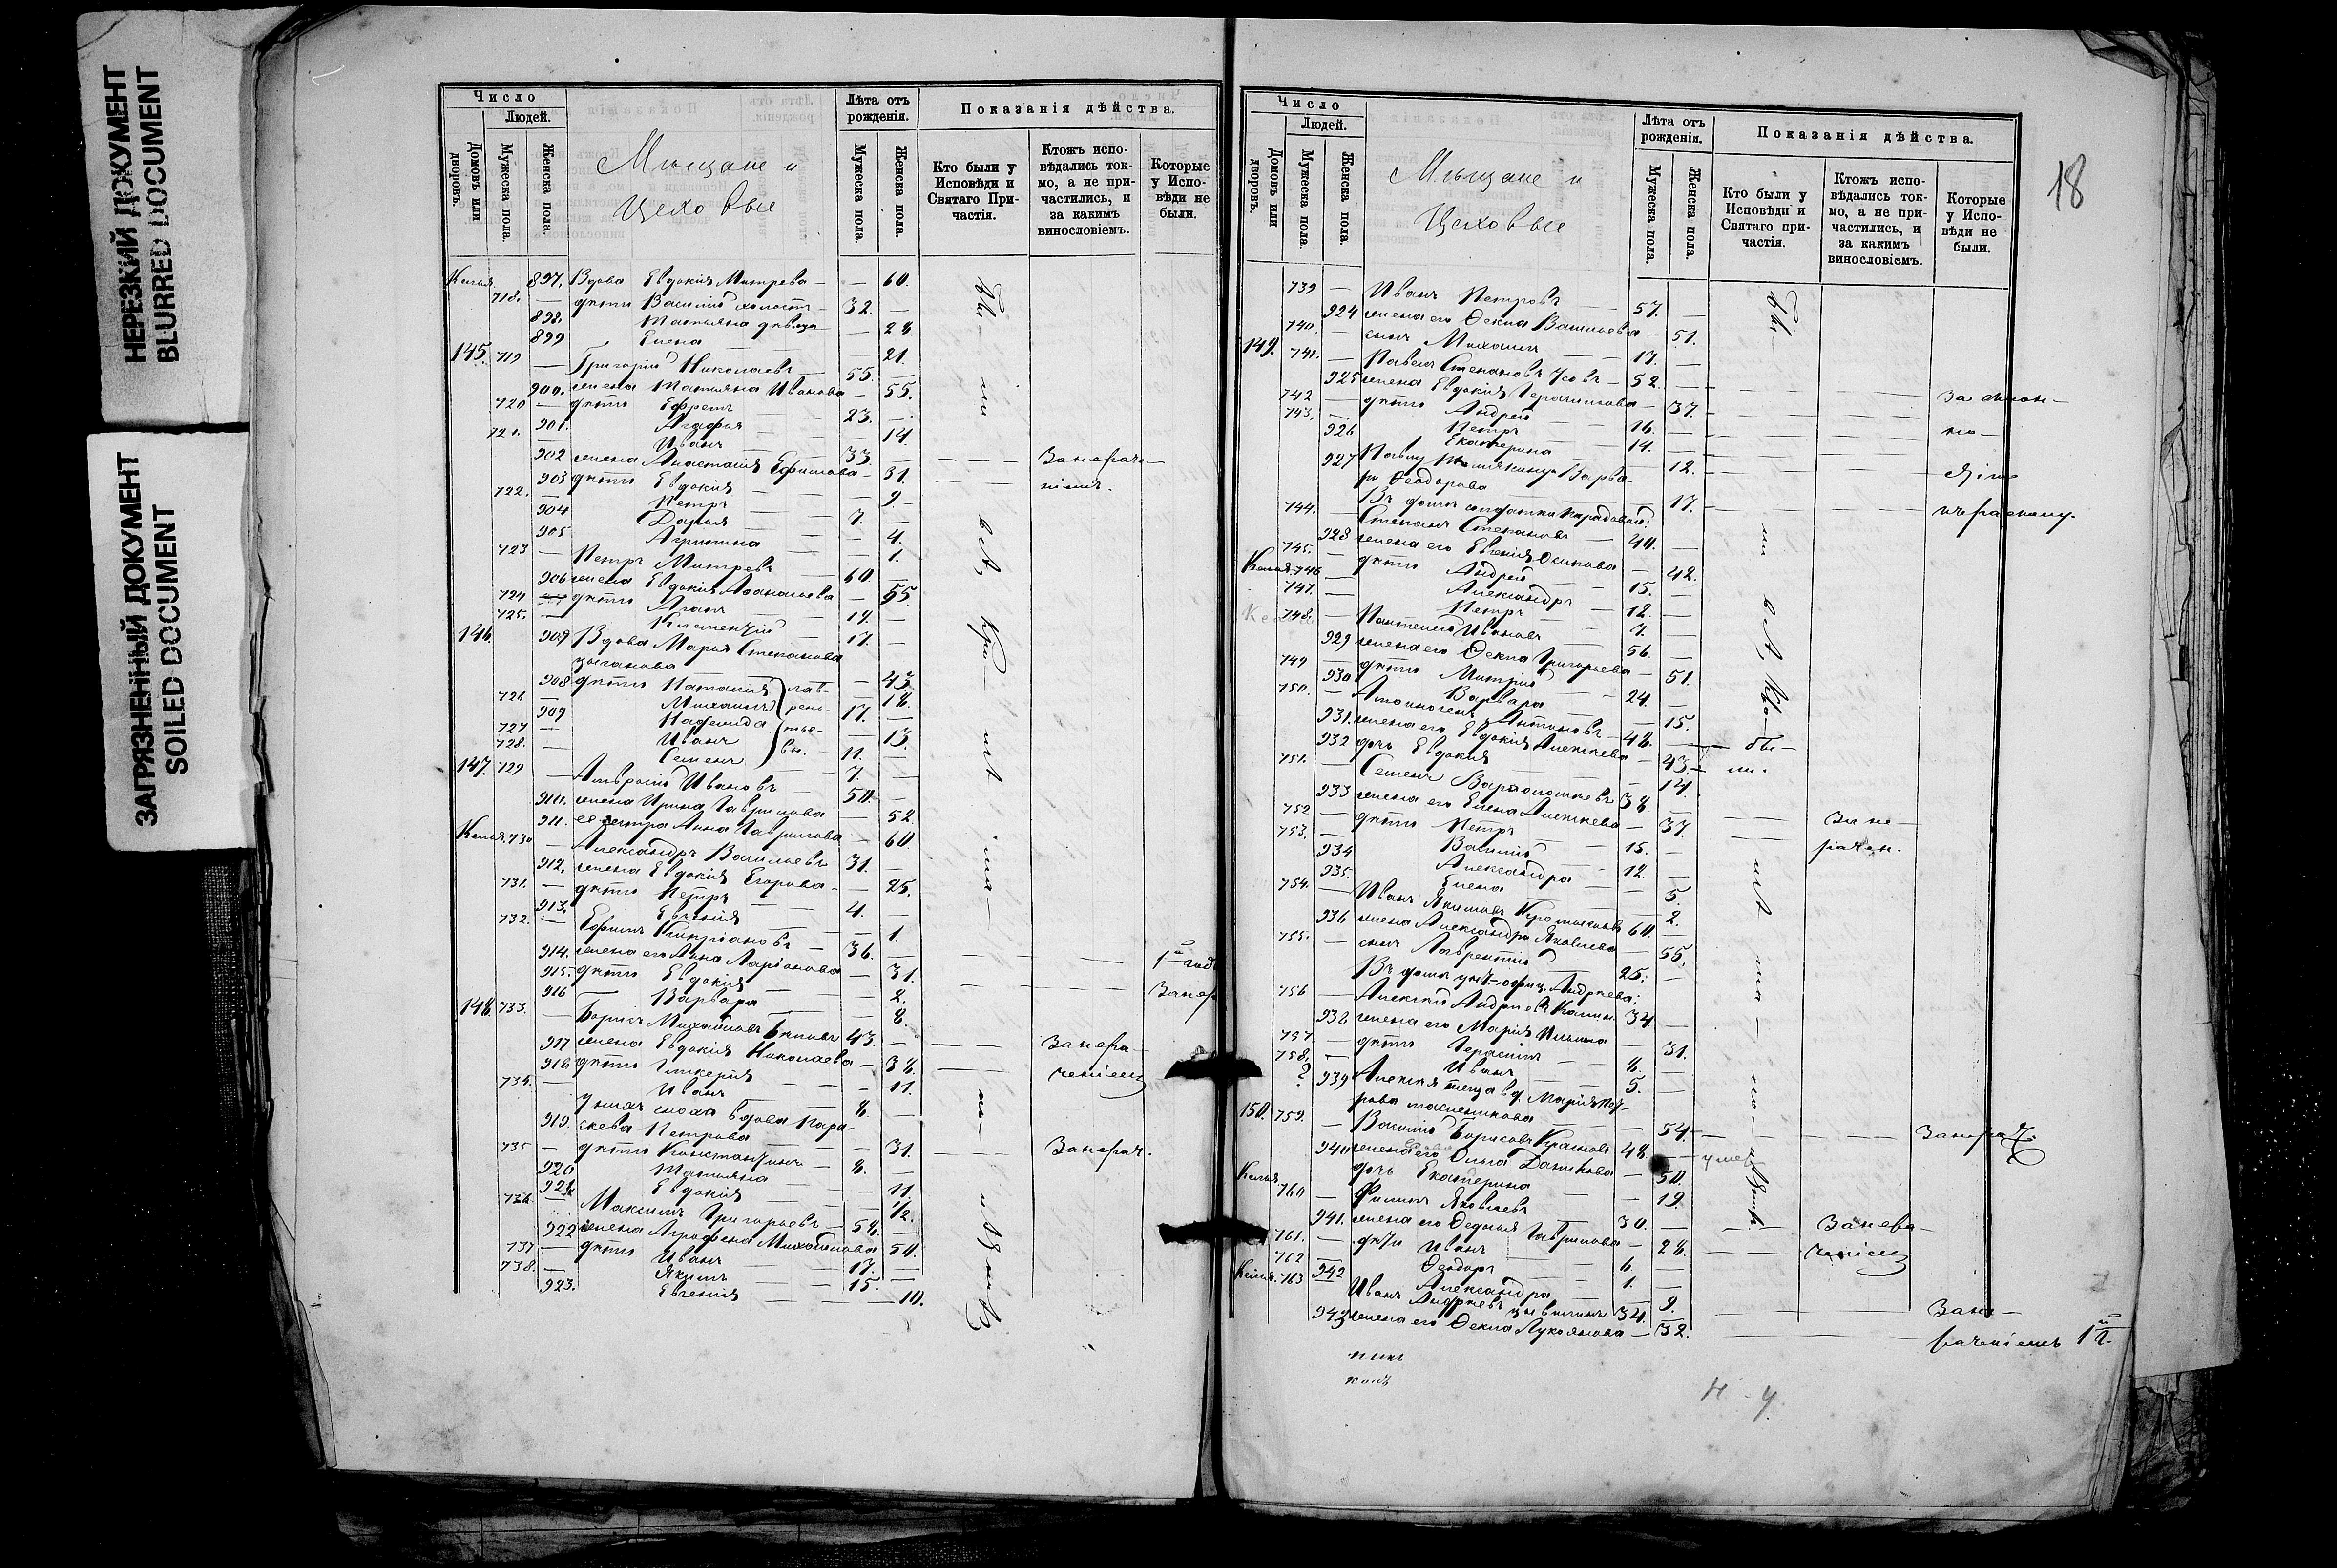 НЕРЕЗКИЙ ДОКУМЕНТ
BLURRED DOCUMENT
ЗАГРЯЗНЕННЫЙ ДОКУМЕНТ
SOILED DOCUMENT
Число
Людей.
Домовъ или дворовъ.
Мужеска пола.
Женска пола.
Мѣщане и
Цеховые
Лѣта отъ рожденія.
Мужеска пола.
Женска пола.
Показанія дѣйства.
Кто были у Исповѣди и Святаго Причастія.
Ктожъ исповѣдались токмо, а не причастились, и за какимъ винословіемъ.
Которые у Исповѣди не были.
Келья 897. Вдова Евдокія Митрева — — 60.
718. — дѣти Василій холост — 32. —
898. Татьяна дѣвица — — 28.
899 Елена — — 21.
145. 719 — Григорій Николаевъ — 55. —
900. жена Татьяна Иванова — 55.
720 — дѣти Ефремъ — 23. —
901. Агафья — — 14
721. — Иванъ — 33. —
902 жена Анастасія Ефимова — 31.
903 дѣти Евдокія — — 9
722. — Петръ — 7. —
904 Дарья — — 4.
905 Агрипина — — 1.
723 — Петръ Митревъ — 60. —
906 жена Евдокія Афанасьева — 55.
724 — дѣти — 19. —
725. — Климентій — 17. —
146. 909 Вдова Марья Степанова
цыганова — 43
908 дѣти Наталія — 18.
726 — Михаилъ — 17. —
909 Надежда — 13.
727 — Иванъ — 11. —
728. — Семенъ — 7. —
Лаврентьевы.
147. 729 — Амвросій Ивановъ — 50. —
910. жена Ирина Гаврилова — 52.
911. ея сестра Анна Гаврилова — 60
Келья. 730 — Александръ Васильевъ 31. —
912. жена Евдокія Егорова — 25.
731. — дѣти Петръ — 4. —
913. Евгенія — — 1.
732. — Ефимъ Кипріановъ — 36. —
914. жена его Анна Ларіонова — 31.
915. дѣти Евдокія — — 2.
916 Варвара — — 8.
148. 733. — Борисъ Михайловъ 43. —
917 жена Евдокія Николаева — 38.
918 дѣти Гликерія — — 11.
734. — Иванъ — 8. —
у нихъ сноха вдова Пара-
919. скева Петрова — — 31.
735 — дѣти Константинъ — 8. —
920 Татьяна — — 11.
921 Евдокія — — 1/2.
736. — Максимъ Григорьевъ — 58. —
922 жена Аграфена Михайлова 50.
737 — дѣти Иванъ — 17. —
738. — Якимъ — 15. —
923. Евгенія — — 10.
Бы-
ли
всѣ,
кро-
мѣ
ма-
ло-
лѣтнихъ
За нерач-
ніемъ.
1й годъ
Занер
За нера-
ченіемъ
Занерач.
18
Число
Людей.
Домовъ или дворовъ.
Мужеска пола.
Женска пола.
Мѣщане и
Цеховые
Лѣта отъ рожденія.
Мужеска пола.
Женска пола.
Показанія дѣйства.
Кто были у Исповѣди и Святаго причастія.
Ктожъ исповѣдались токмо, а не причастились, и за какимъ винословіемъ.
Которые у Исповѣди не были.
739 — Иванъ Петровъ — 57. —
924 жена его Фекла Васильева — 51.
740. — сынъ Михаилъ — 17. —
149. 741. — Павелъ Степановъ Усовъ — 52. —
925 жена Евдокія Герасимова — 37.
742 — дѣти Андрей — 16. —
743. — Петръ — 14. —
926 Екатерина — — 12.
927 Варва-
ра Феодорова — 17.
Въ домѣ солдатки
744. — Степанъ Степановъ — 40. —
928 жена его Евгенія Осипова — 42.
745. — дѣти Андрей — 15. —
Келья. 746 — Александръ — 12. —
747. — Петръ — 7. —
Келья 748. — Пантелей Ивановъ 56. —
929 жена его Фекла Григорьева — 51.
749 — дѣти Митрій — 24. —
930 Варвара — — 15.
750. — Антиновъ — 48. —
931. жена его Евдокія Алексѣева — 43.
932 дочь Евдокія — — 14.
751. — Семенъ Варфоломѣевъ 38 —
933 жена его Елена Алексѣева — 37.
752 — дѣти Петръ — 15. —
753. — Василій — 12. —
934 Александра — — 5.
935. Елена — — 2.
754. — Иванъ Якимовъ 60. —
936 жена Александра Яковлева — 55.
755. — сынъ Лаврентій — 25. —
Въ домѣ унт.-офиц. Андреева:
756 — Алексѣй Андреевъ 34 —
938 жена его Марія Ильина — 31.
757 — дѣти Герасимъ — 8. —
758. — Иванъ — 5. —
? 939 Алексѣя теща вд. Марія
— 54.
150. 759. — Василій Борисовъ 48. —
940 жена его Ольга Данилова — 50.
дочь Екатерина — — 19.
Келья 760 — Филипъ Яковлевъ — 30. —
941. жена его Федосья Гаврилова — 28.
761. — дѣти Иванъ — 6 —
762 — Феодоръ — 1. —
942 Александра — — 9.
Келья. 763 — Иванъ Андреевъ 34. —
943 жена его Фекла Лукоянова — 32.
Бы-
ли
всѣ,
кро-
мѣ
ма-
ло-
бы-
ли.
За склон-
но-
къ расколу.
За не-
рачен.
Занерач.
умер
За нера-
ченіемъ
Зане-
раченіемъ 1й г.
Н-у